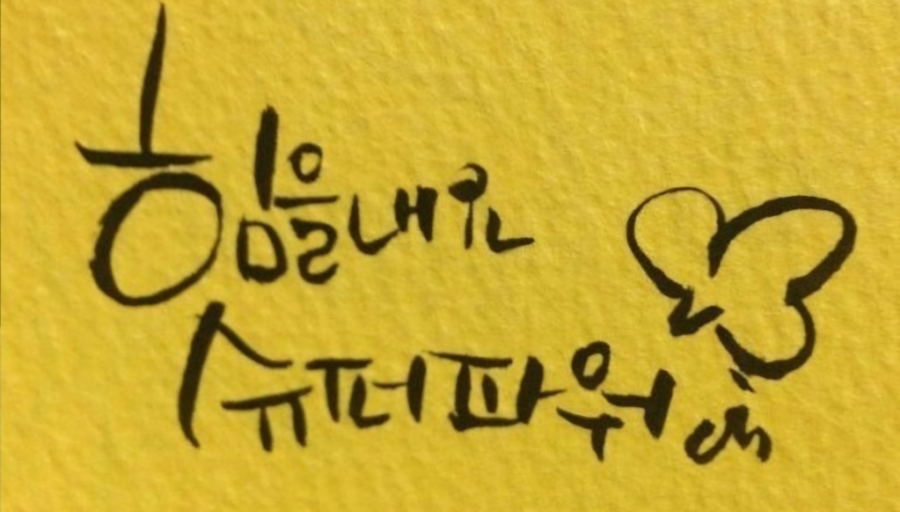 힘을내요
슈퍼파워